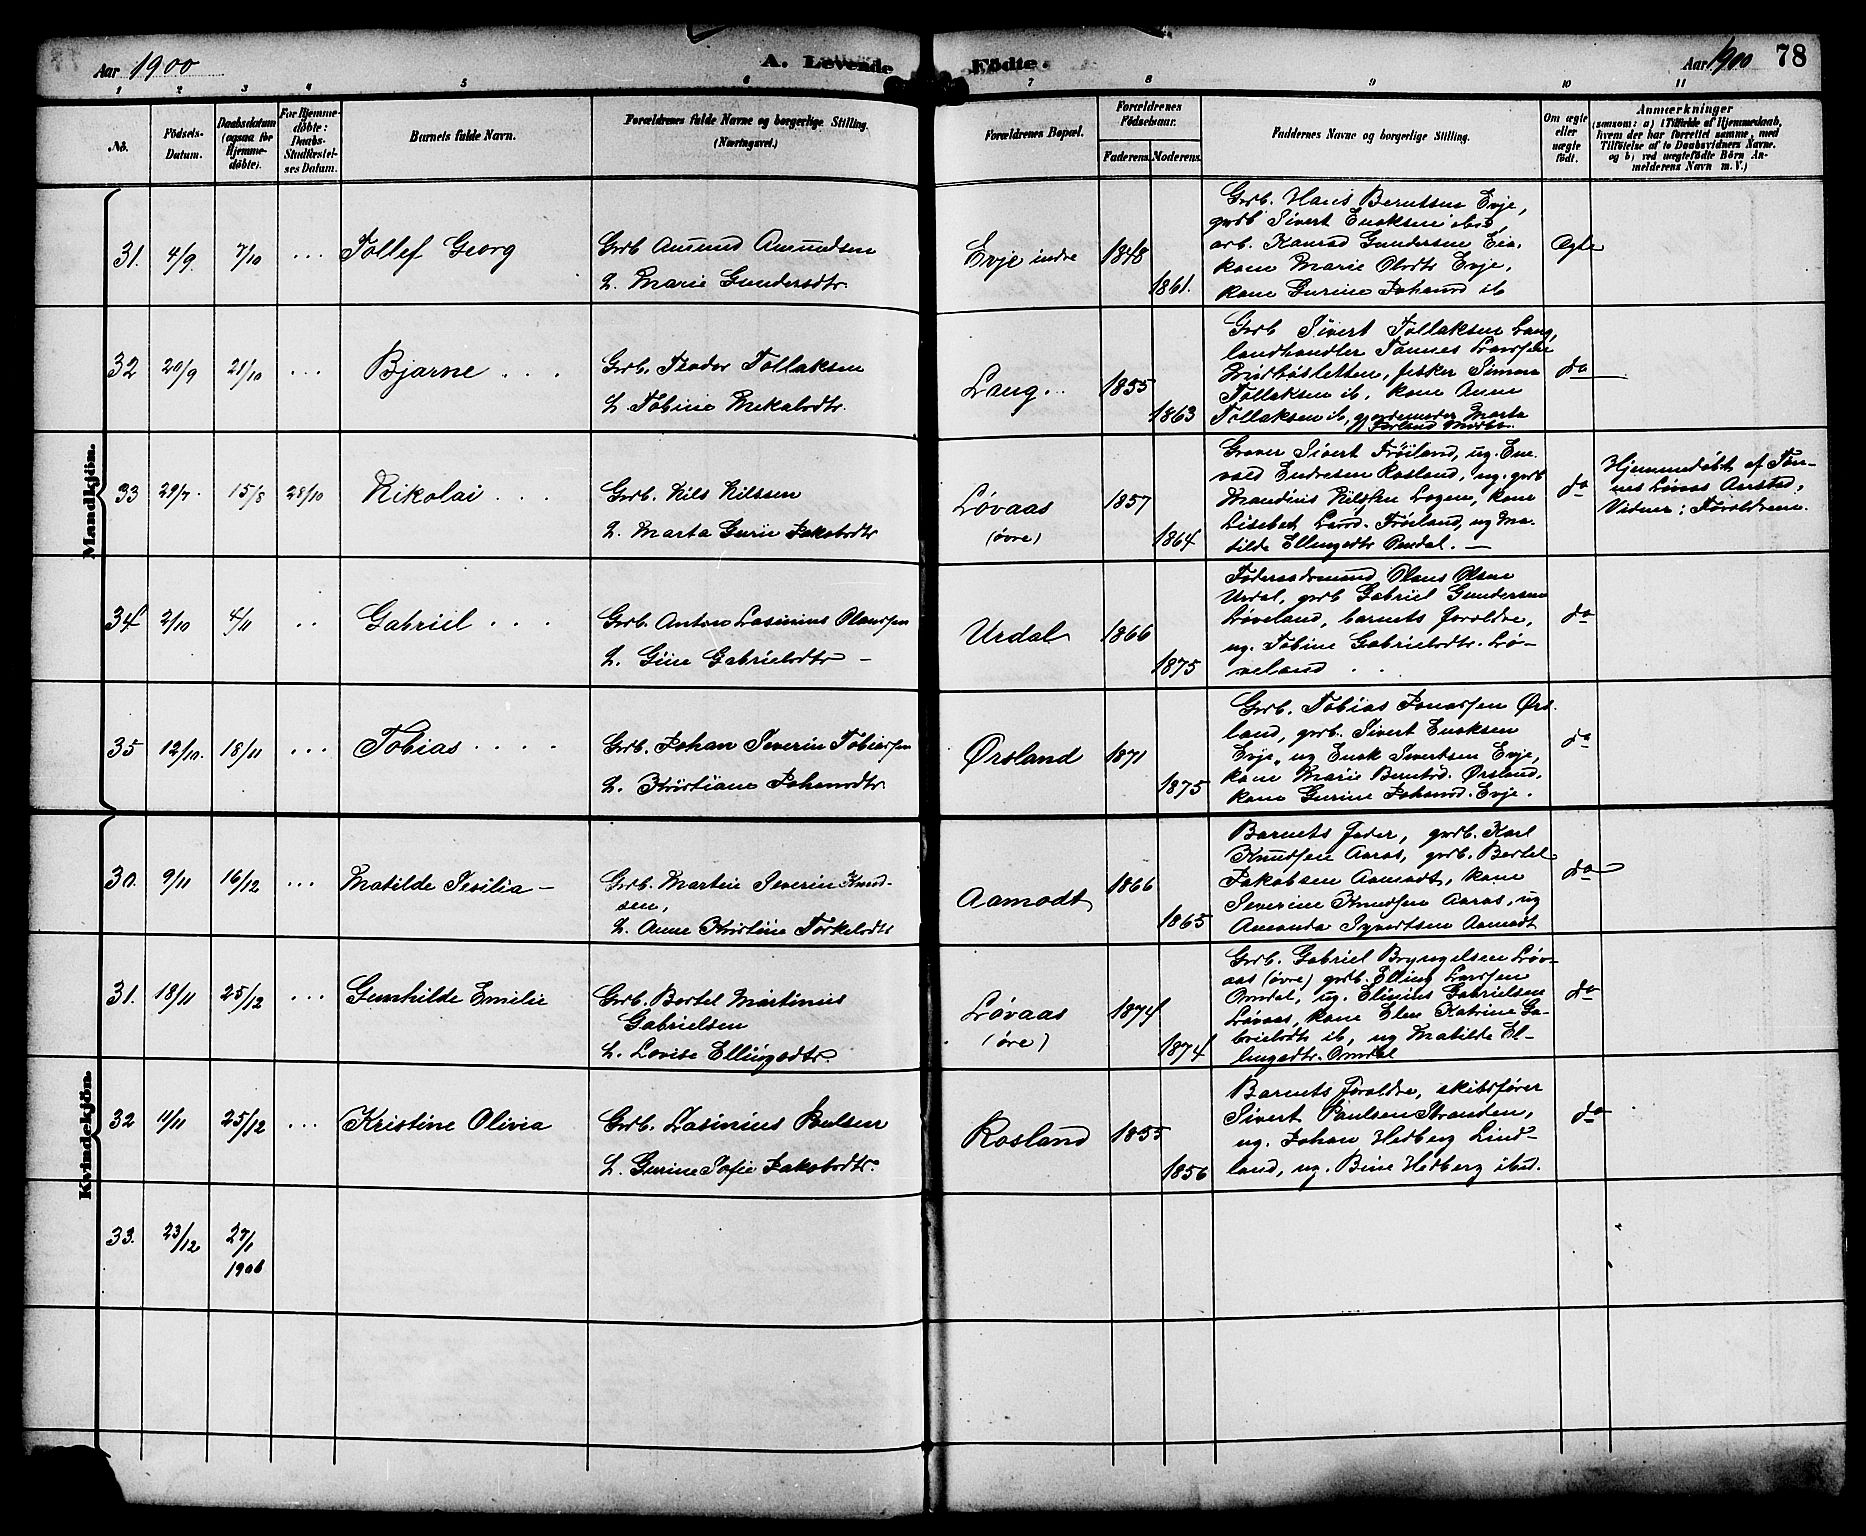 Aar 1900
A. Levende Födte.
Aar 1900 78
1 2 3 4 5 6 7 8 9 10 11
No.
Födsels-
Datum.
Daabsdatum
(ogsaa for
Hjemme-
döbte).
For Hjemme-
döbte:
Daabs-
Stadfæstel-
ses Datum.
Barnets fulde Navn.
Forældrenes fulde Navne og borgerlige Stilling.
(Næringsvei.)
Forældrenes Bopæl.
Forældrenes
Födselsaar.
Faderens. Moderens.
Faddernes Navne og borgerlige Stilling.
Om ægte
eller
uægte
födt.
Anmærkninger
(saasom: a) i Tilfælde af Hjemmedaab,
hvem der har forrettet samme, med
Tilföielse af to Daabsvidners Navne.
og b) ved uægtefödte Börn An-
melderens Navn m. V.)
Mandkjön.
31. 4/9. 7/10 ... Tollef Georg
Grdb Amund Amundsen
h. Marie Gundersdtr.
Evje indre 1848
1861.
Grdb. Hans Berntsen Evje,
grdb Sivert Enoksen ibid,
arb. Konrad Gundersen Eia,
kone Marie Olsdtr Evje,
kone Gurine Johansd ib
Ægte
32 20/9 21/10 ... Bjarne . . .
Grdb. Teodor Tollaksen
h. Tobine Mikalsdtr.
Laug .. 1855
1863
Grdb Sivert Tollaksen Laug,
landhandler Tønnes Larssen
Midbøsletten, fisker Simon
Tollaksen ib, kone Anne
Tollaksen ib, gjordemoder Marta
do
33 29/7. 15/8 28/10 Nikolai . . .
Grdb. Nils Nilssen
h. Marta Gurie Jakobsdtr
Løvaas
(øvre)
1857
1864
Graver Sivert Frøiland, ug. En-
vald Endresen Rosland, ug. grdb
Mandius Nilssen Logen, kone
Lisebet Larsd. Frøiland, ug Ma-
tilde Ellingsdtr Omdal. —
do
Hjemmedøbt af Tøn-
nes Løvaas Aarstad,
Vidner: Forældrene.
34 2/10 4/11 .. Gabriel . . .
Grdb. Anton Lasinius Olaussen
h. Gine Gabrielsdtr —
Urdal 1866
1875
Føderaadsmand Olaus Olsen
Urdal, grdb Gabriel Gundersen
Løveland, barnets forældre,
ug. Tobine Gabrielsdtr. Lø-
veland
do
35 12/10. 18/11 ... Tobias . . . .
Grdb. Johan Severin Tobiassen
h. Kristiane Johansdtr
Ørsland 1871
1875
Grdb. Tobias Jonassen Ørs-
land, grdb. Sivert Enoksen
Evje, ug Enok Sivertsen Evje,
kone Marie Berntsd. Ørsland,
kone Gurine Johansd. Evje.
do
Kvindekjön.
30. 9/11 16/12 ... Matilde Sesilia —
Grdb. Martin Severin Knud-
sen,
h. Anne Kristine Torkelsdtr
Aamodt 1866
1865
Barnets fader, grdb. Karl
Knudsen Aaros, grdb. Bertel
Jakobsen Aamodt, kone
Severine Knudsen Aaros, ug
Amanda Syvertsen Aamodt
do
31. 18/11 25/12 ... Gunhilde Emilie
Grdb. Bertel Martinius
Gabrielsen
h. Lovise Ellingsdtr.
Løvaas
(øvre)
1874
1874
Grdb. Gabriel Bryngelsen Løv-
aas (øvre) grdb. Elling Larssen
Omdal, ug. Elinius Gabrielsen
Løvaas, kone Elen Katrine Ga-
brielsdtr ib, ug Matilde El-
lingsdtr. Omdal
do
32 11/11 25/12 ... Kristine Olivia
Grdb. Lasinius Paulsen
h. Gurine Sofie Jakobsdtr.
Rosland 1855
1856
Barnets forældre, skibsfører
Sivert Paulsen Stranden,
ug. Johan Hedberg Lind-
land, ug. Bine Hedberg ibid.
do
33. 23/12 27/1
1906